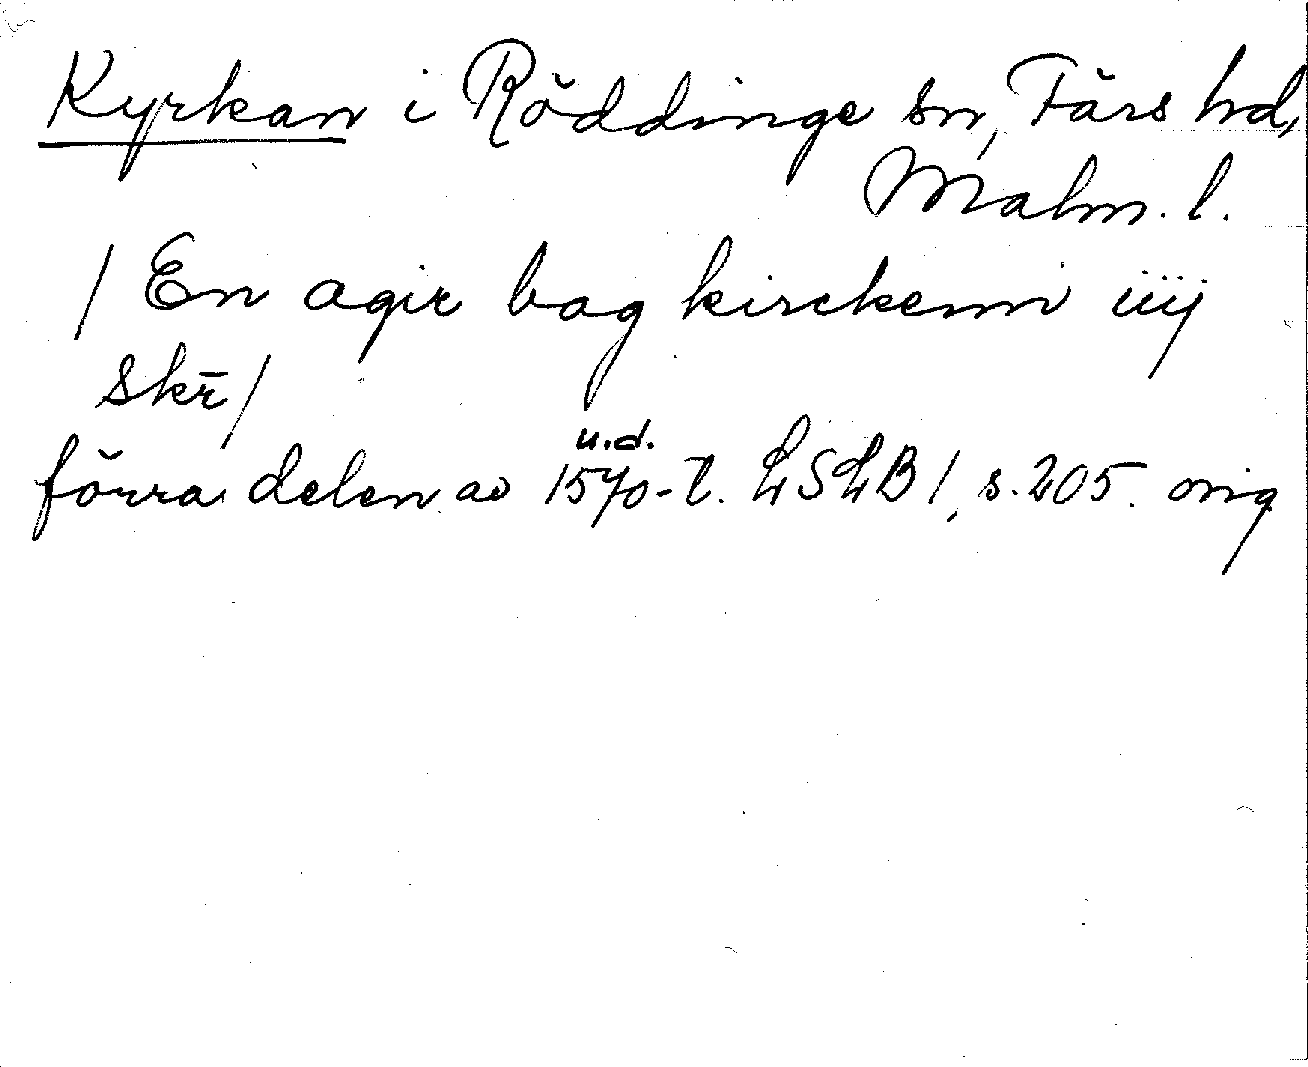 Kyrkan i Röddinge sn, Färs hd,
Malm. l.
/ En agir bag kirckenn iiij
skr̄ /
u.d.
förra delen av 1570-t. LSLB 1, s. 205. orig